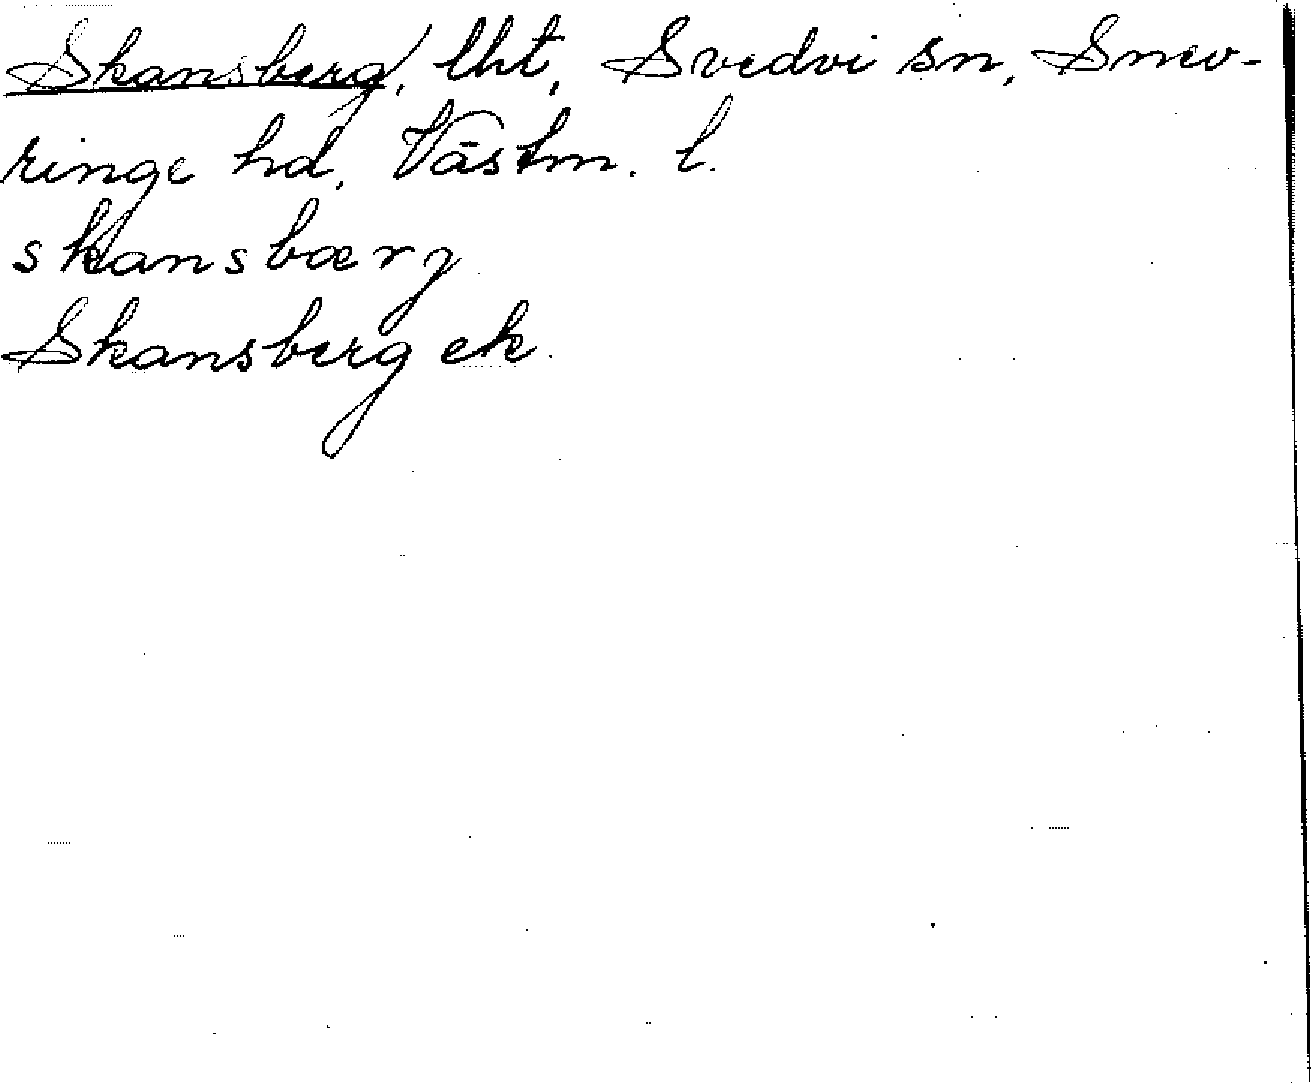 Skansberg, lht, Svedvi sn, Snev-
ringe hd, Västm. l.
skansbærj
Skansberg ek.